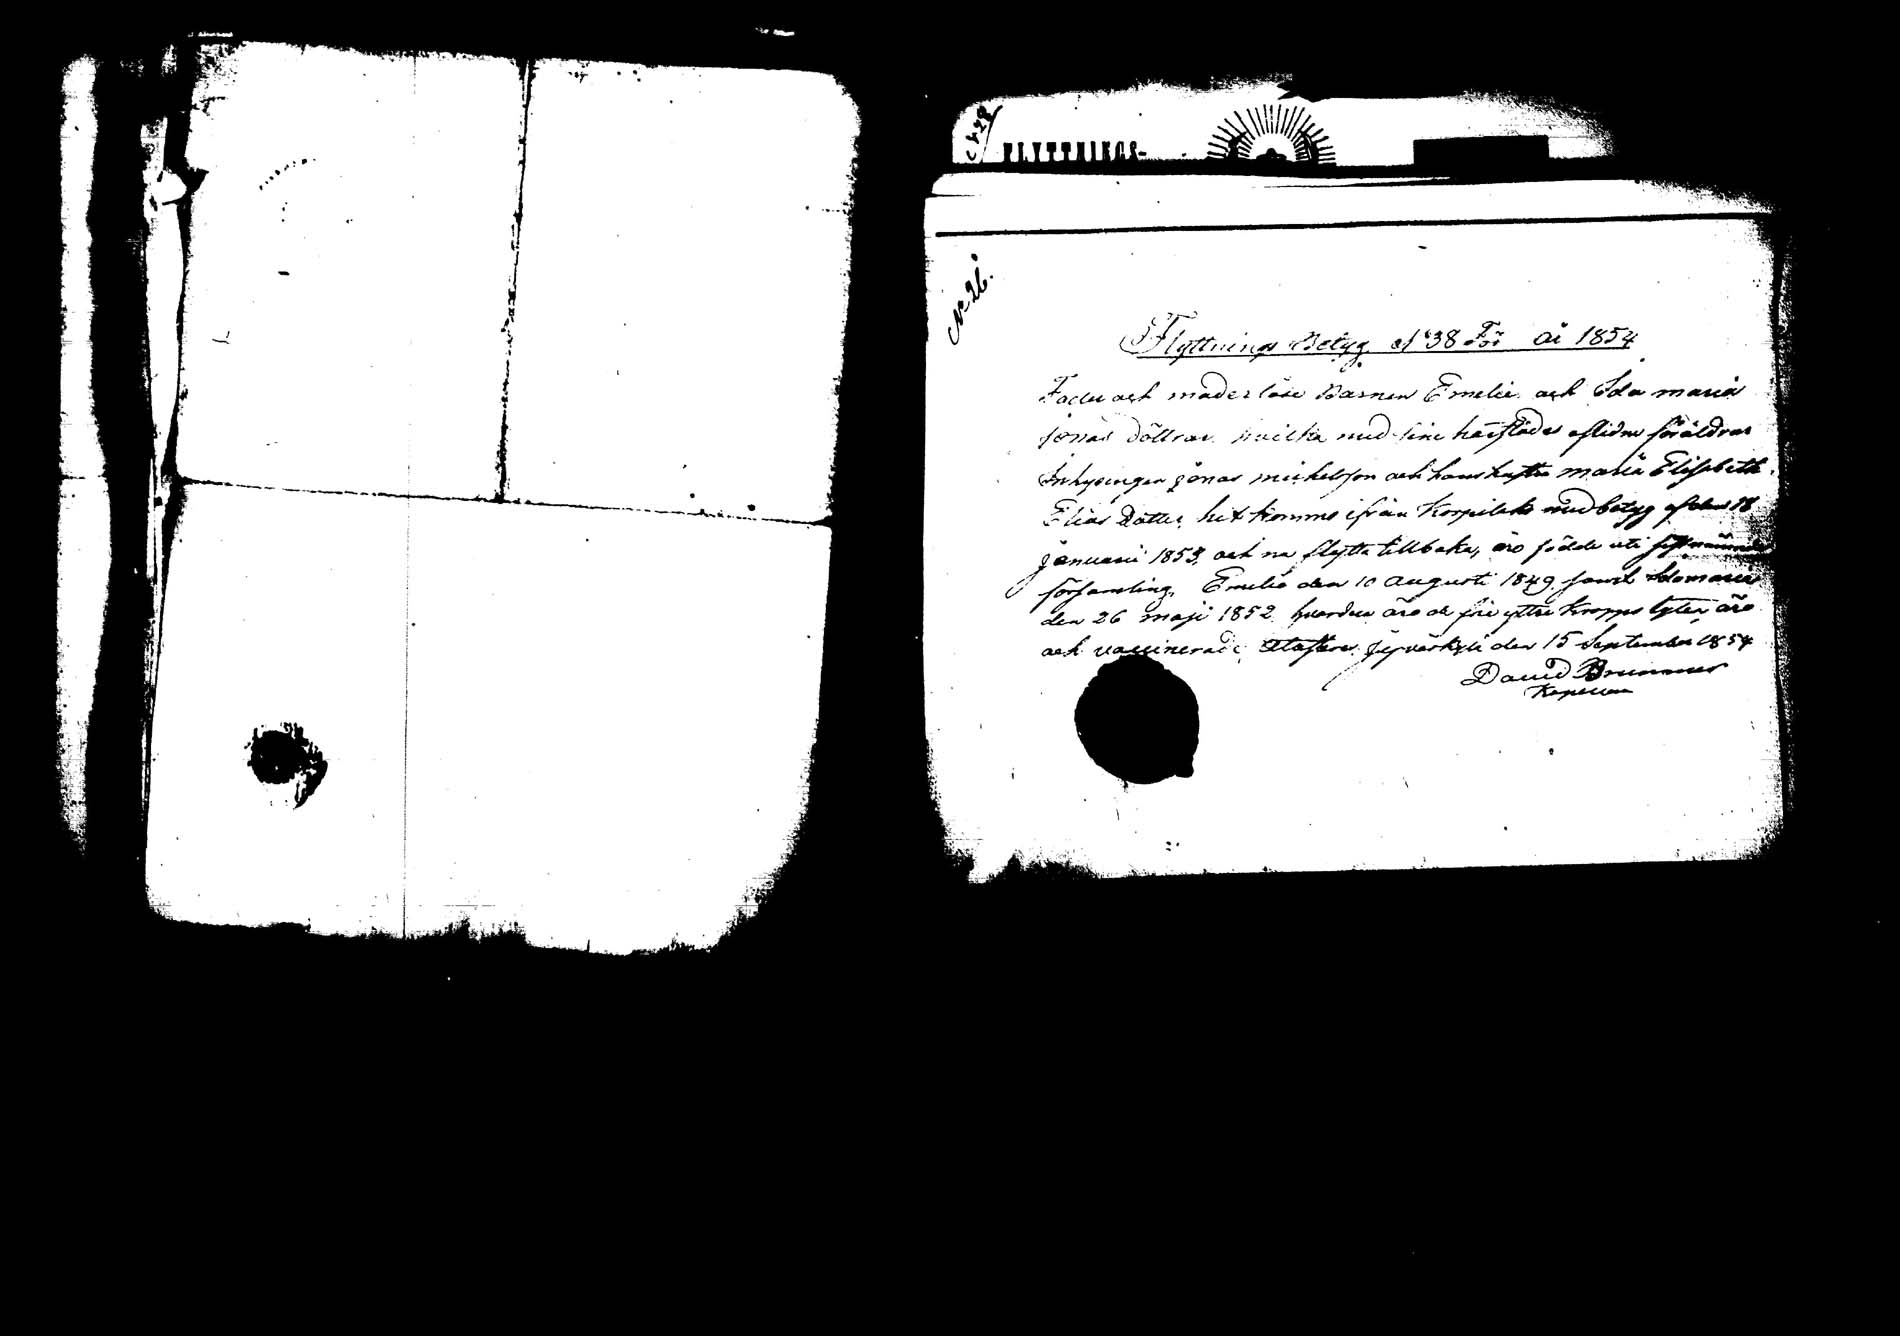 N:28
FLYTTNINGS-
N:o 26.
Flyttnings Betyg N:o 38 För År 1854
Fader och moderlöse Barnen Emelie och Ida maria
Jonas Döttrar hvilka med sine härstädes aflidne föräldrar
Inhysingen Jonas michelsson och hans hustru maria Elisabeth
Elias Dotter, hit komme ifrån Korpilaks med betyg af den 18
Januarii 1853, och nu flytta tillbaka, äro födde uti sistnämnde
församling, Emelie den 10 Augusti 1849 samt Idamaria
den 26 maji 1852 hvarden äro de för yttre kropps lyten äro
och vaccinerade, Attesterar Jyväskyle den 15 September 1854
David Brunnner
Kapellan